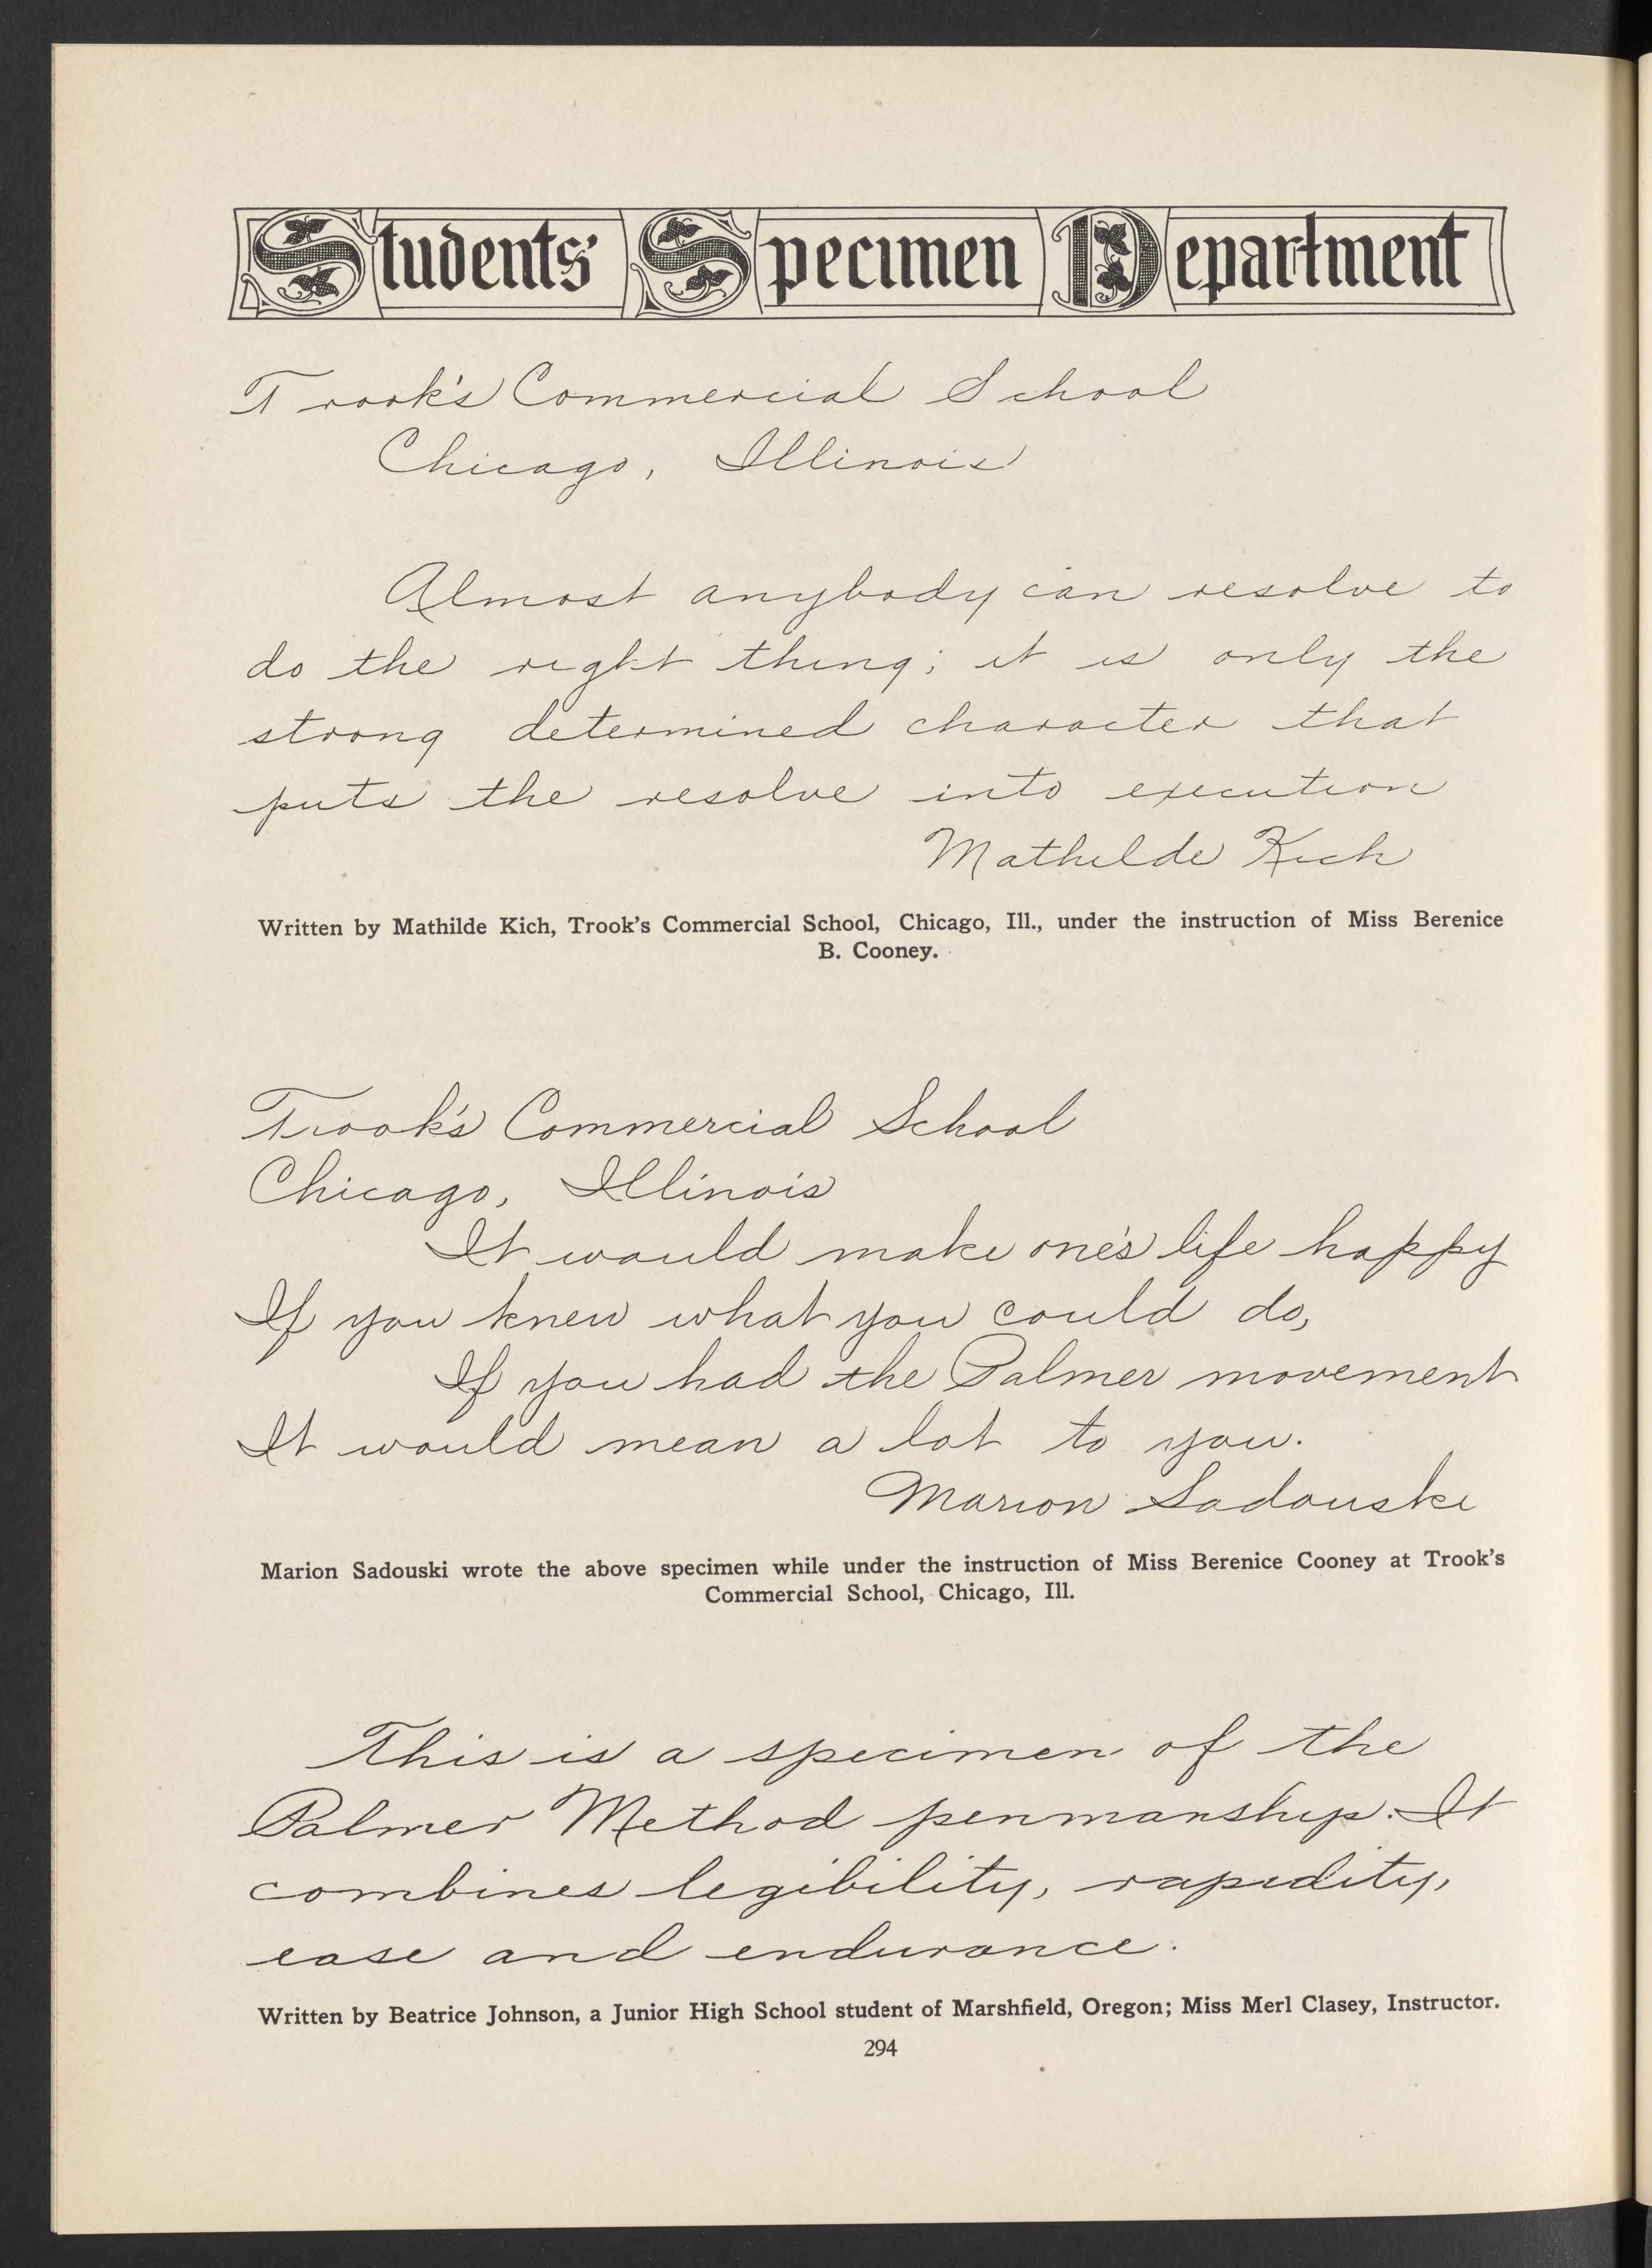 Students' Specimen Department
Trook's Commercial School
Chicago, Illinois
Almost anybody can resolve to
do the right thing; it is only the
strong determined character that
puts the resolve into execution
Mathilde Kich
Written by Mathilde Kich, Trook's Commercial School, Chicago, Ill., under the instruction of Miss Berenice
B. Cooney.
Trook's Commercial School
Chicago, Illinois
It would make one's life happy
If you knew what you could do,
If you had the Palmer movement
It would mean a lot to you.
Marion Sadouski
Marion Sadouski wrote the above specimen while under the instruction of Miss Berenice Cooney at Trook's
Commercial School, Chicago, Ill.
This is a specimen of the
Palmer Method penmanship. It
combines legibility, rapidity,
ease and endurance.
Written by Beatrice Johnson, a Junior High School student of Marshfield, Oregon; Miss Merl Clasey, Instructor.
294